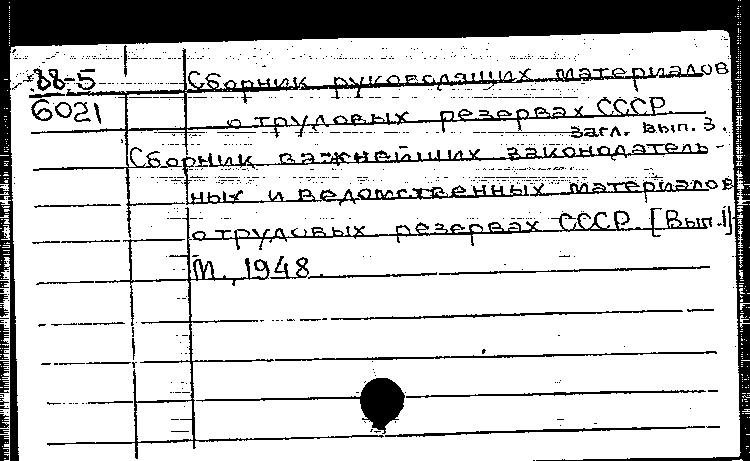 88-5
6021
Сборник руководящих материалов
о трудовых резервах СССР.
загл. вып. 3.
Сборник важнейших законодатель-
ных и ведомственных материалов
о трудовых резервах СССР. [Вып.1]
М., 1948.